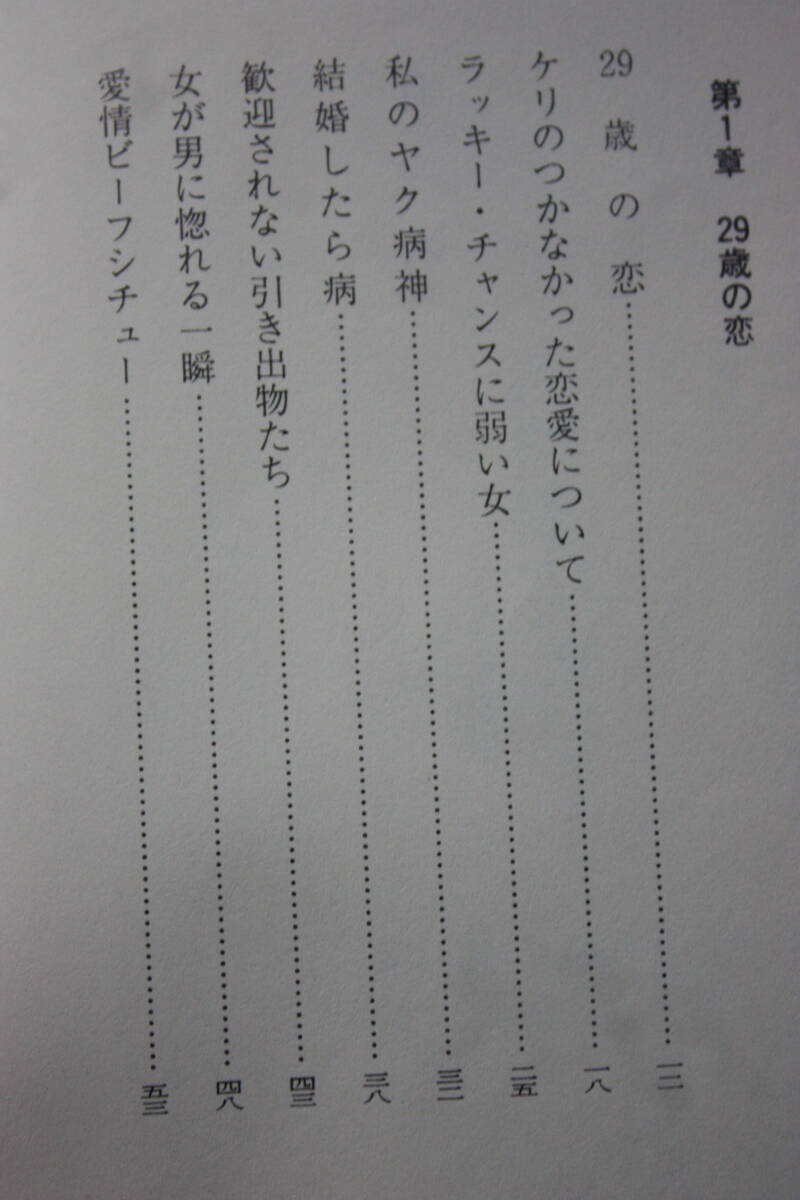 第1章　29歳の恋
29歳の恋……………………一二
ケリのつかなかった恋愛について……………………一八
ラッキー・チャンスに弱い女……………………二五
私のヤク病神……………………三二
結婚したら病……………………三八
歓迎されない引き出物たち……………………四三
女が男に惚れる一瞬……………………四八
愛情ビーフシチュー……………………五三